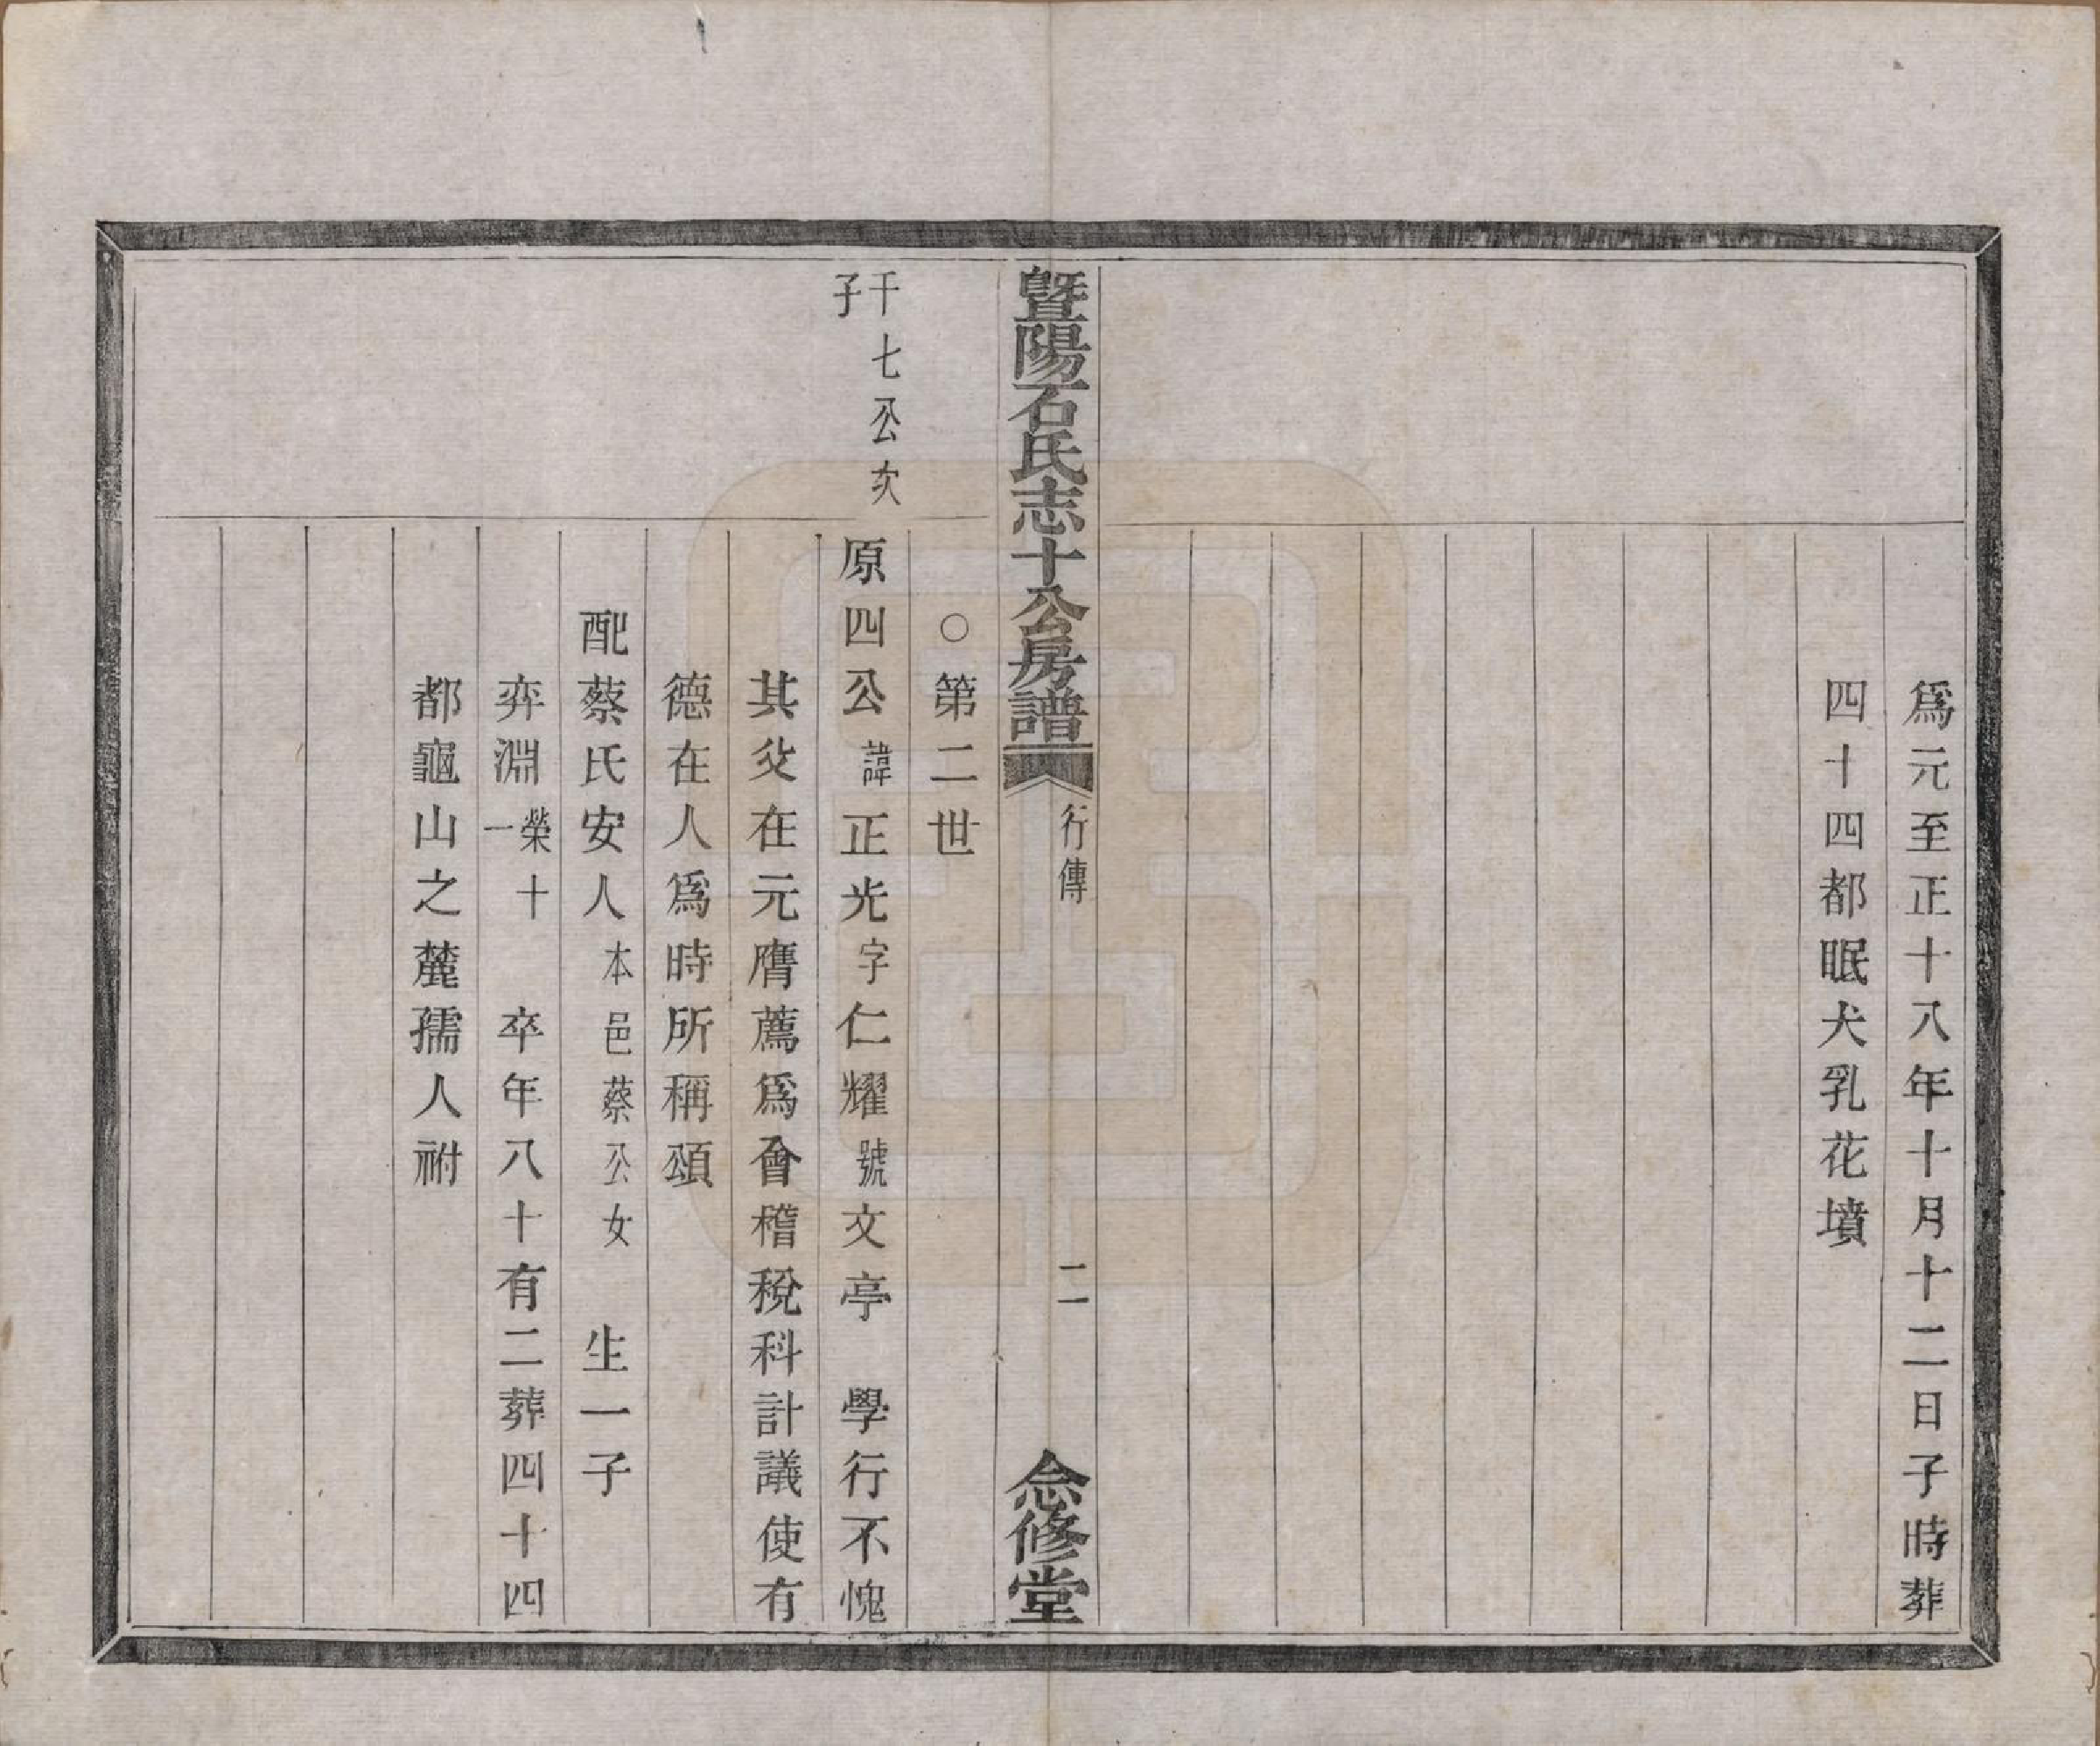 爲元至正十八年十月十二日子時葬
四十四都眠犬乳花墳
暨陽石氏志十公房譜 行傳 二 念修堂
○第二世
千七公次子
原四公諱正光字仁耀號文亭 學行不愧
其父在元膺薦爲會稽稅科計議使有
德在人爲時所稱頌
配蔡氏安人本邑蔡公女 生一子
弈淵榮十一 卒年八十有二葬四十四
都龜山之麓孺人祔